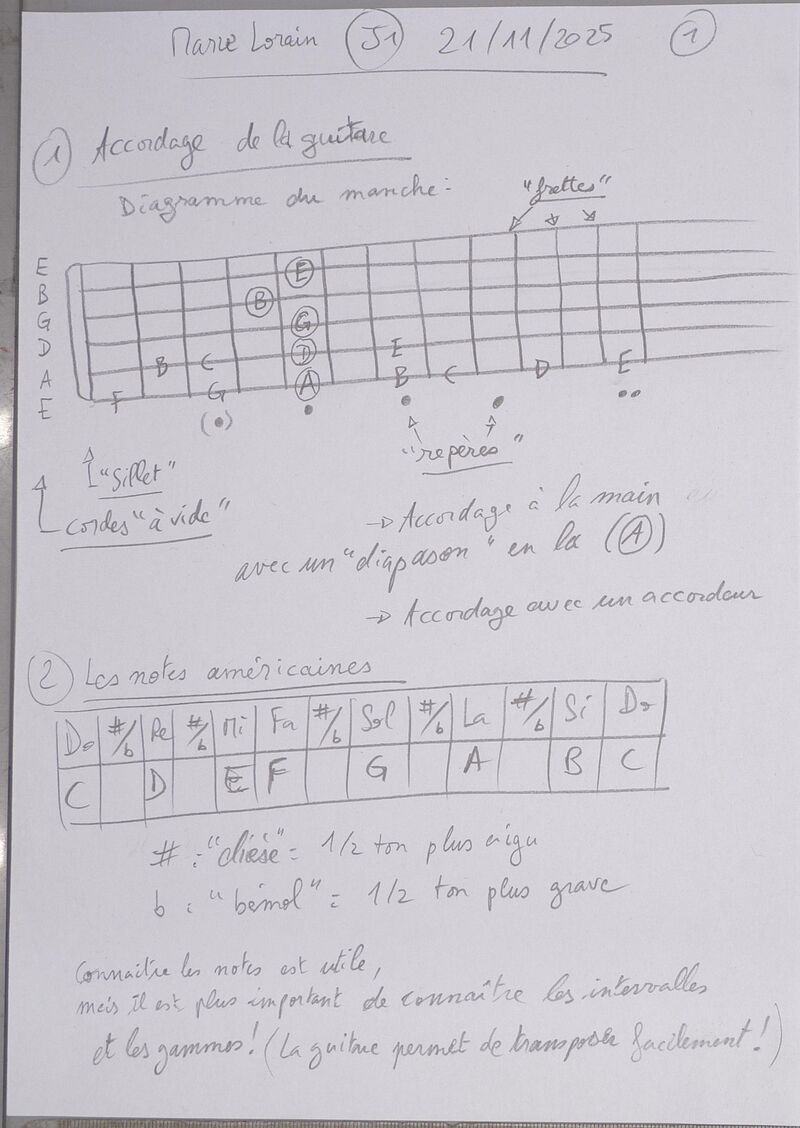 Marie Lorain J1 21/11/2025 1
1 Accordage de la guitare
Diagramme du manche:
"frettes"
E
B
G
D
A
E
E
B
G
D E
B C A B C D E
F G
"Sillet" "repères"
cordes "à vide"
→ Accordage à la main
avec un "diapason" en la (A)
→ Accordage avec un accordeur
2 Les notes américaines
Do #/b Re #/b Mi Fa #/b Sol #/b La #/b Si Do
C D E F G A B C
# : "dièse" = 1/2 ton plus aigu
b : "bémol" = 1/2 ton plus grave
Connaitre les notes est utile,
mais il est plus important de connaître les intervalles
et les gammes! (La guitare permet de transposer facilement!)